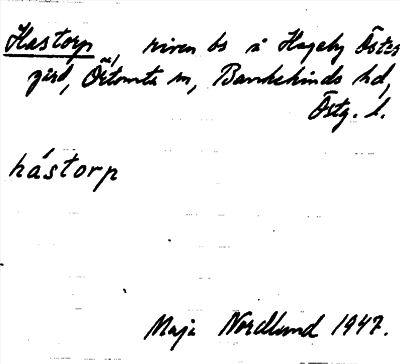 Hastorp, riven bs å Hageby Öster
gård, Örtomta sn, Bankekinds hd,
Östg. l.
hástorp
Maja Nordlund 1947.